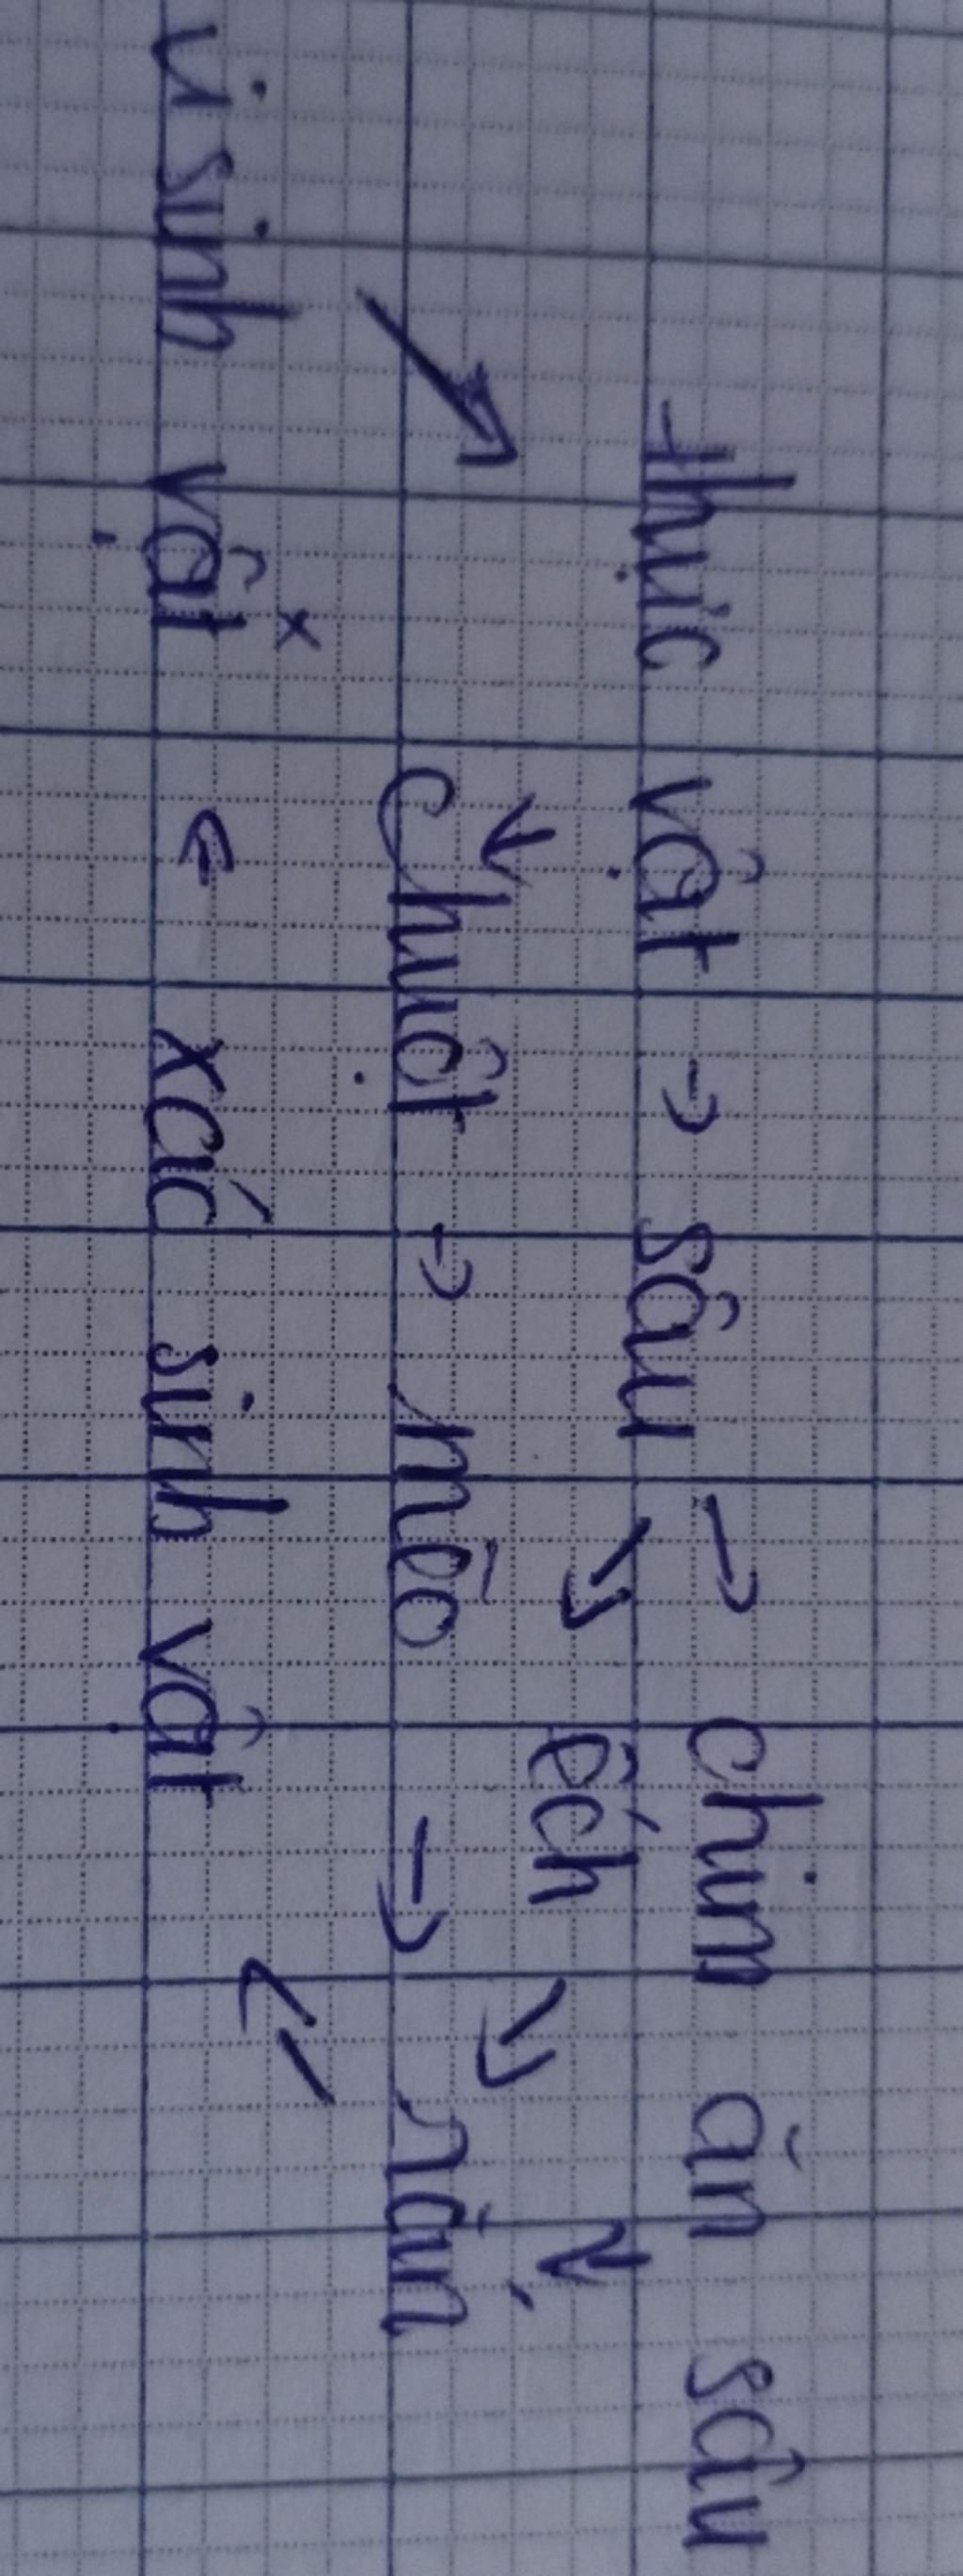 thực vật → sâu → chim ăn sâu
↘ ếch ↘ ↙
↗ ↓ chuột → mèo → rắn
↙
vi sinh vật ← xác sinh vật